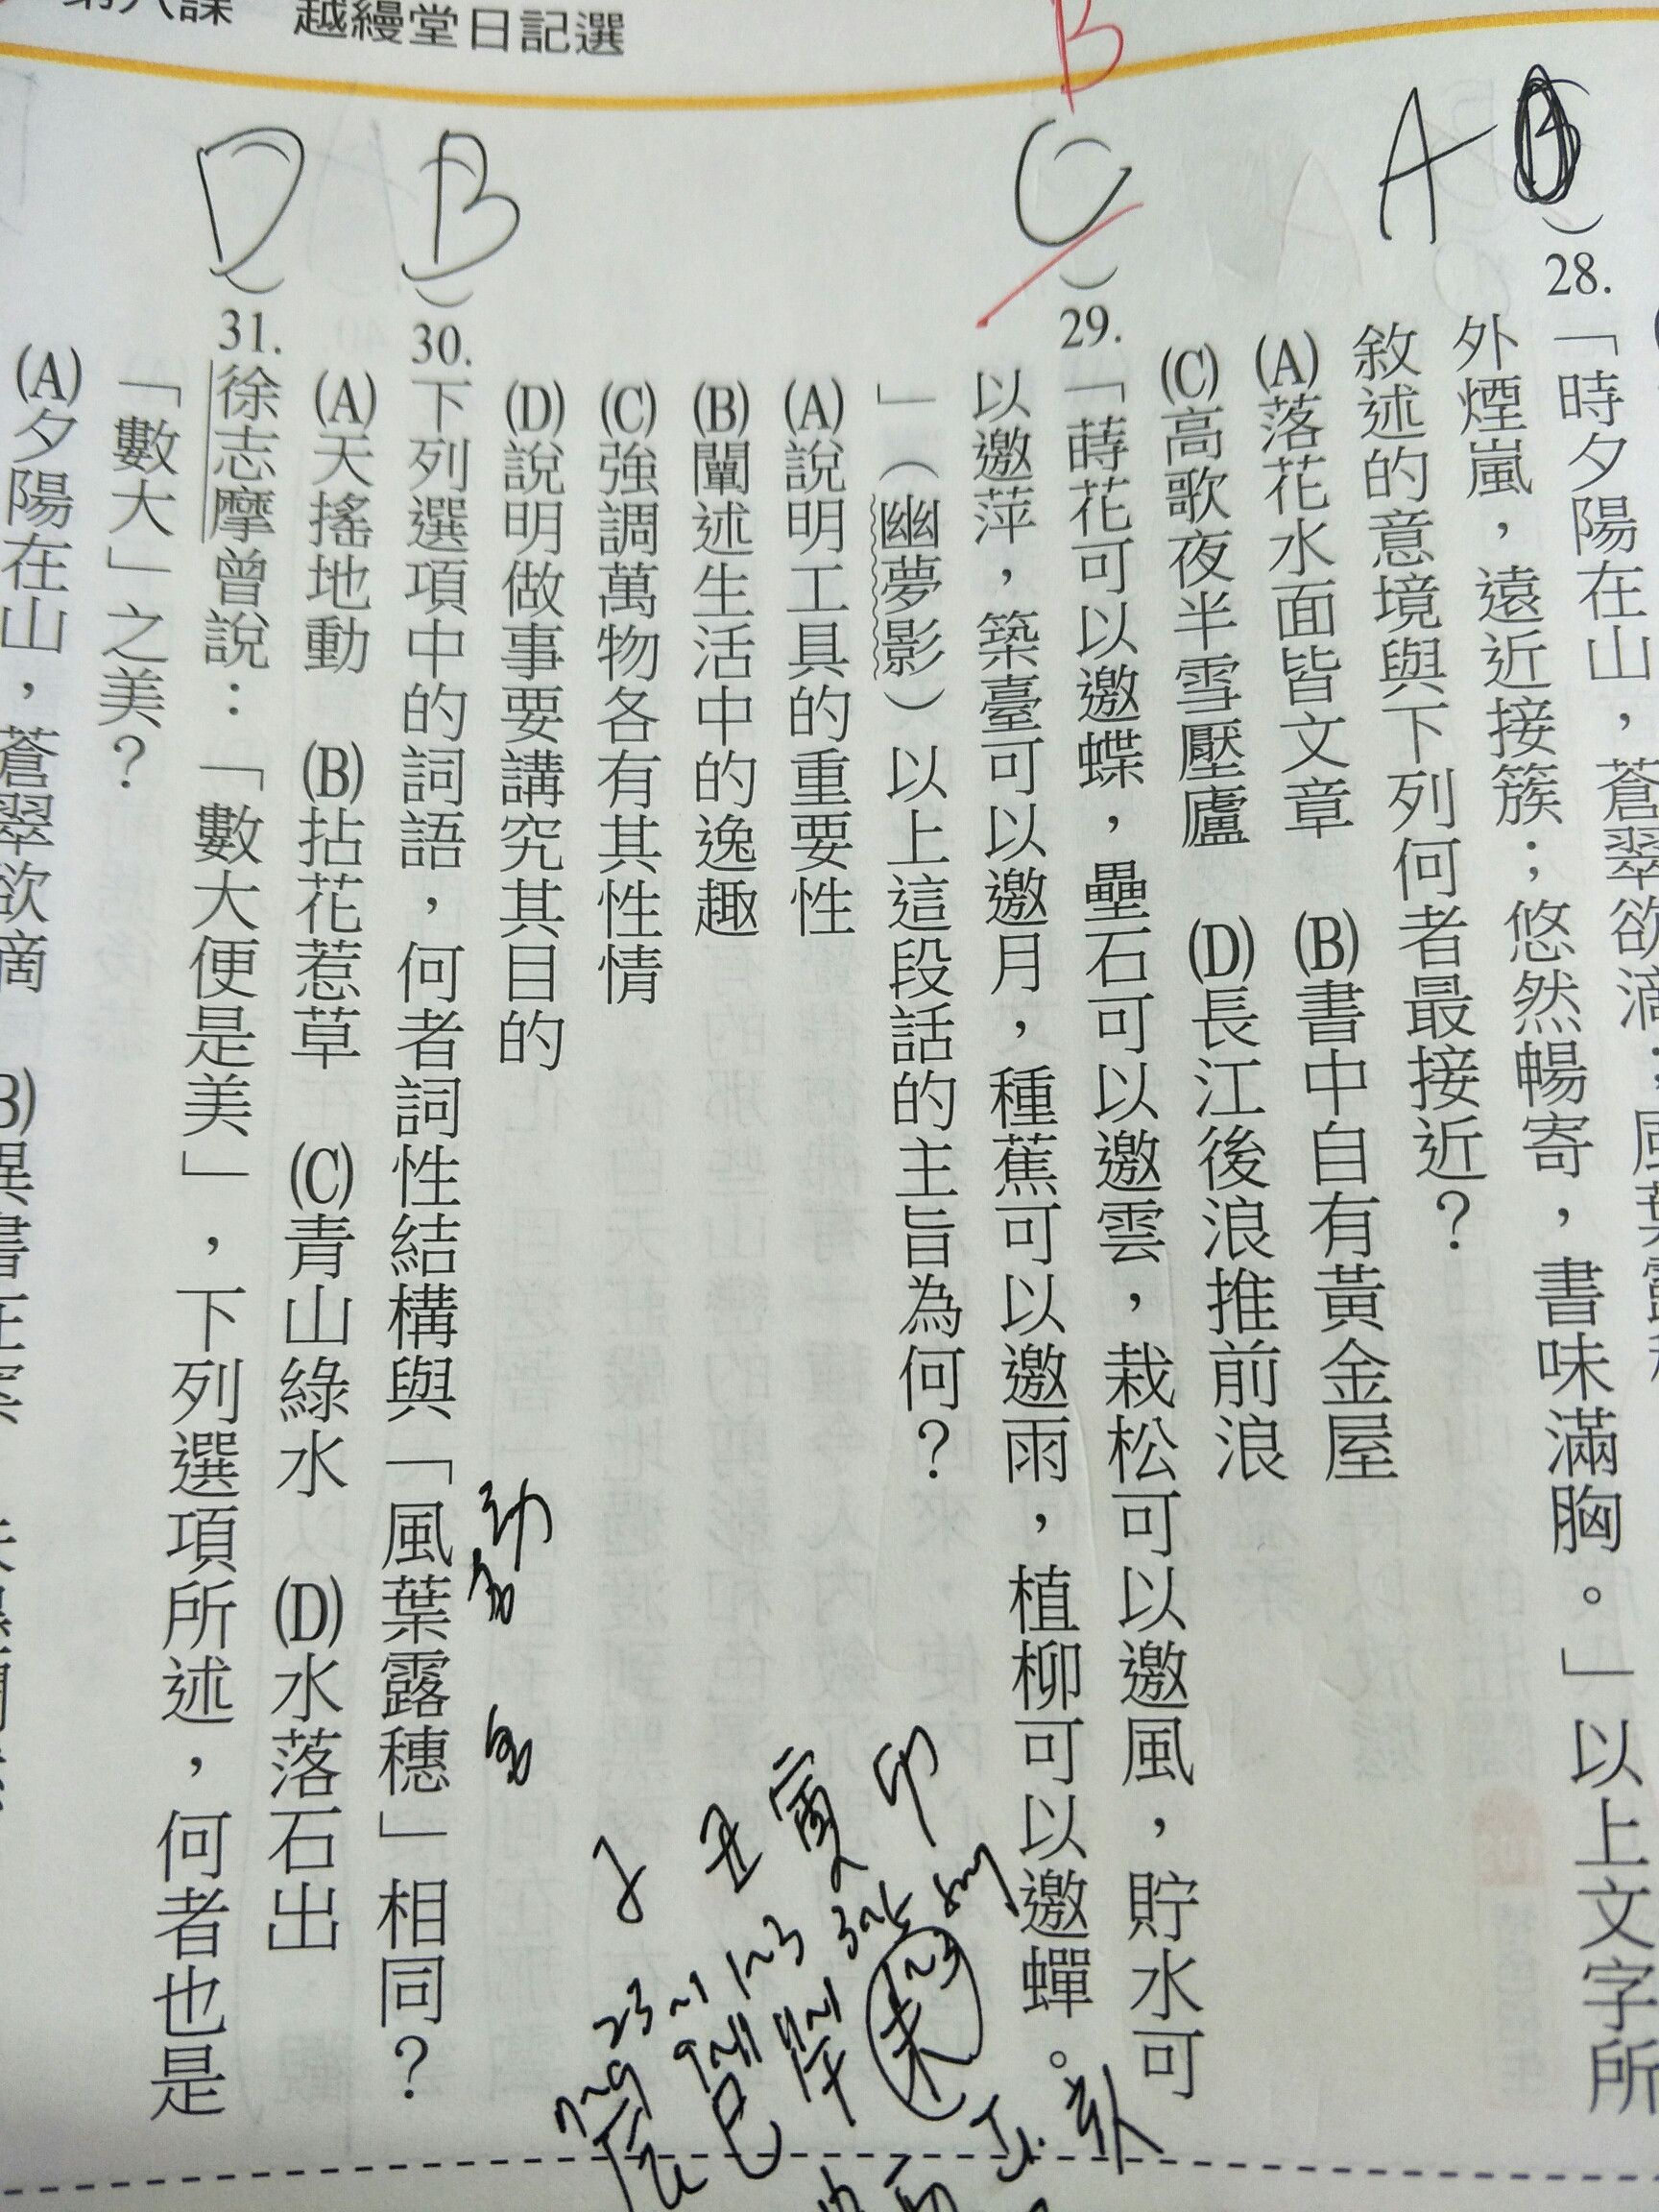 第八課 越縵堂日記選
B
A
28.「時夕陽在山，蒼翠欲滴；風葉露
外煙嵐，遠近接簇；悠然暢寄，書味滿胸。」以上文字所
敘述的意境與下列何者最接近？
(A)落花水面皆文章 (B)書中自有黃金屋
(C)高歌夜半雪壓廬 (D)長江後浪推前浪
C
29.「蒔花可以邀蝶，壘石可以邀雲，栽松可以邀風，貯水可
以邀萍，築臺可以邀月，種蕉可以邀雨，植柳可以邀蟬。
」（幽夢影）以上這段話的主旨為何？
(A)說明工具的重要性
(B)闡述生活中的逸趣
(C)強調萬物各有其性情
(D)說明做事要講究其目的
B
30.下列選項中的詞語，何者詞性結構與「風葉露穗」相同？
(A)天搖地動 (B)拈花惹草 (C)青山綠水 (D)水落石出
D
31.徐志摩曾說：「數大便是美」，下列選項所述，何者也是
「數大」之美？
(A)夕陽在山，蒼翠欲滴
子 丑 寅 卯
23~1 1~3 3~5
7~9 9~11 11~1 1~3
辰 巳 午 未